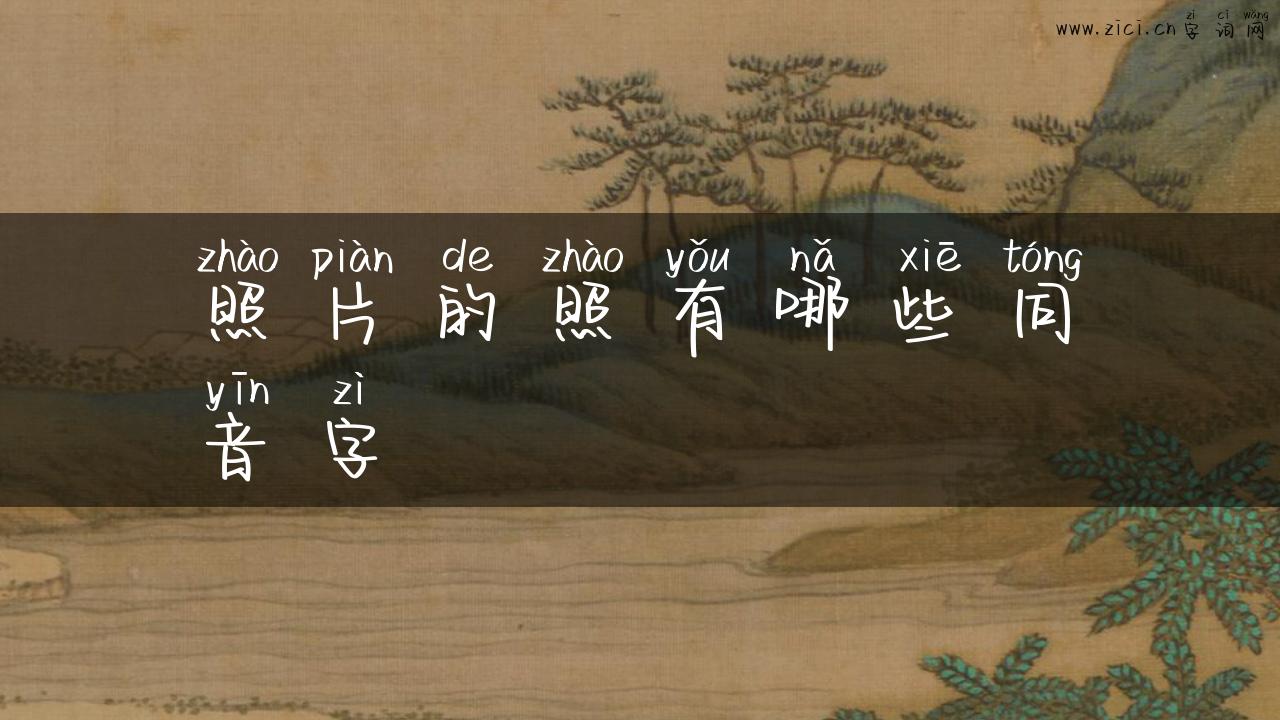 zì cí wǎng
www.zici.cn 字词网
zhào piàn de zhào yǒu nǎ xiē tóng
照片的照有哪些同
yīn zì
音字